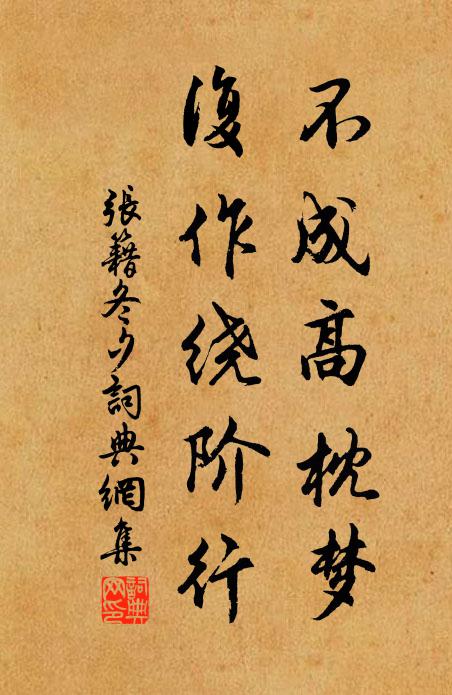 不成高枕梦
復作绕阶行
張籍冬夕詞典網集
詞典
网印